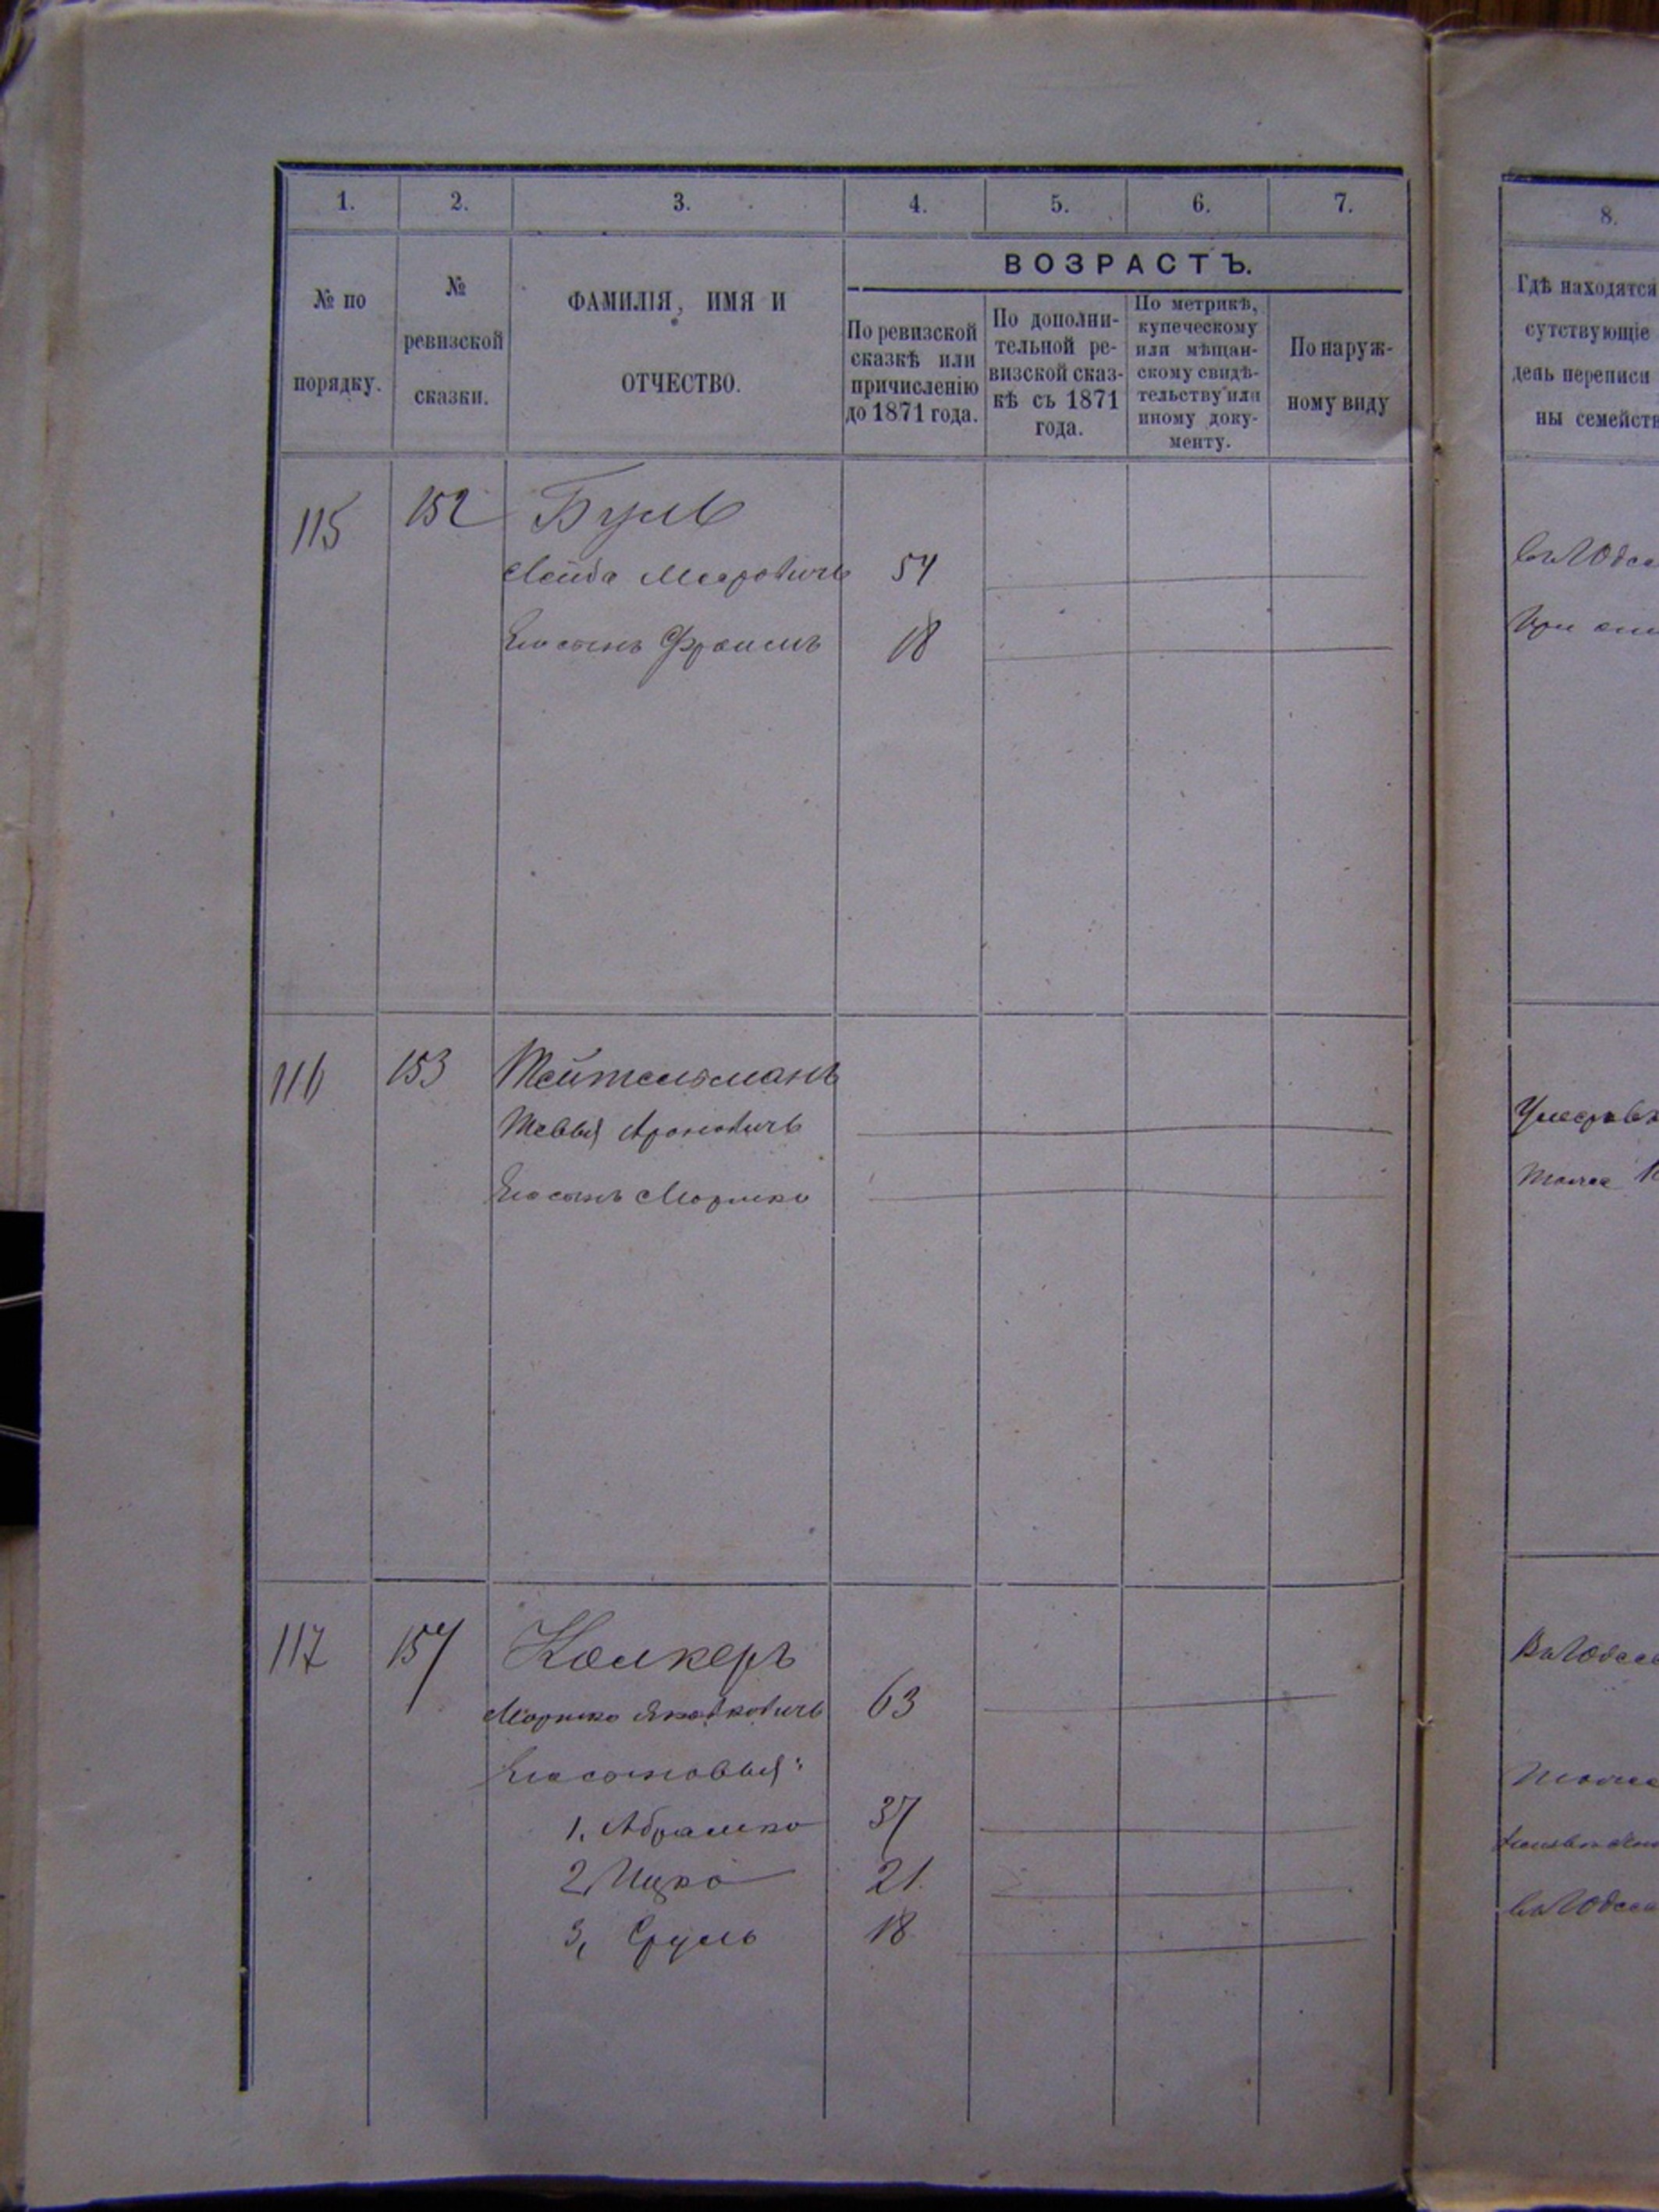 1. 2. 3. 4. 5. 6. 7.
№ по порядку.
№ ревизской сказки.
ФАМИЛІЯ, ИМЯ И ОТЧЕСТВО.
ВОЗРАСТЪ.
По ревизской
сказкѣ или
причисленію
до 1871 года.
По дополни-
тельной ре-
визской сказ-
кѣ съ 1871
года.
По метрикѣ,
купеческому
или мѣщан-
скому свидѣ-
тельству или
иному доку-
менту.
По наруж-
ному виду
115 152 Буль
Лейба Мееровичъ 54
Его сынъ Фроимъ 18
116 153 Тейтельманъ
Тевья Ароновичъ
Его сынъ Мошко
117 154 Колкеръ
Мошко Янкелевичъ 63
Его сыновья:
1. Абрамко 37
2, Ицко 21.
3, Сруль 18
8.
Гдѣ находятся
сутствующіе
день переписи
ны семейств
Умеръ въ
Тоже
Тоже